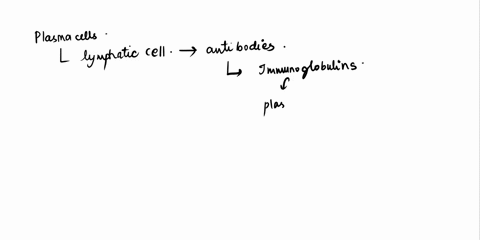 Plasma cells.
lymphatic cell. → antibodies.
Immunoglobulins.
plas